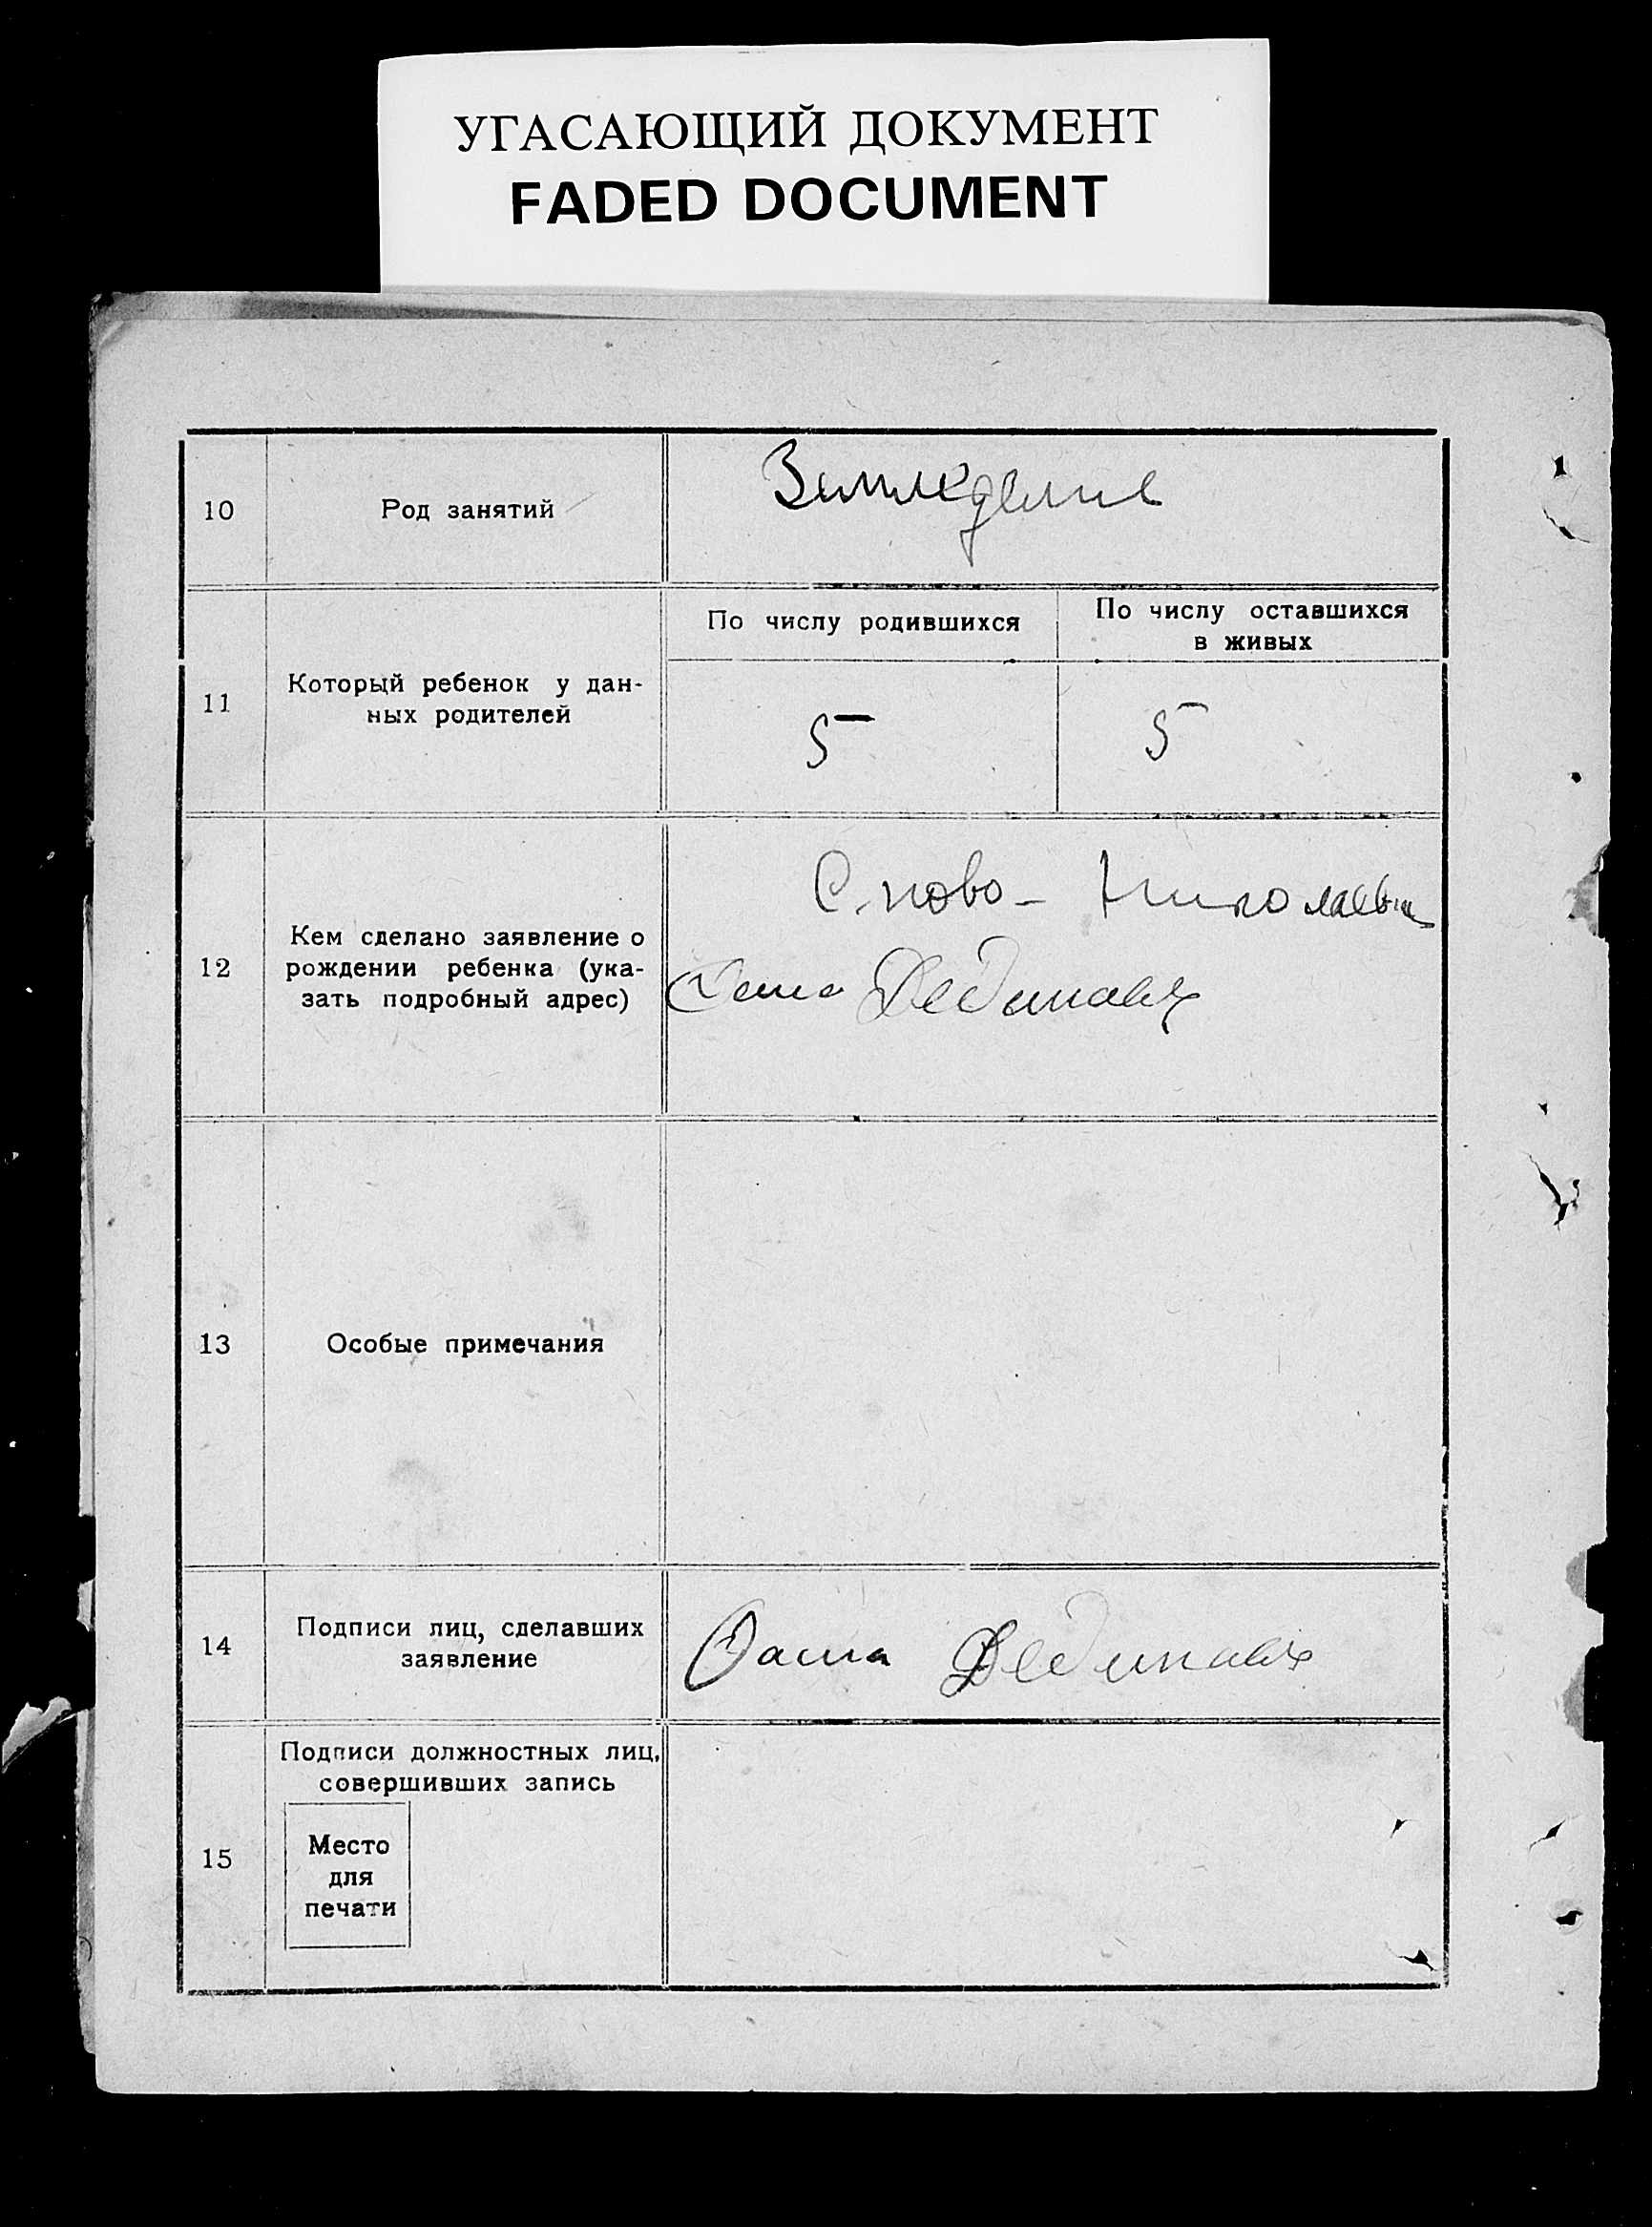 УГАСАЮЩИЙ ДОКУМЕНТ
FADED DOCUMENT
10
Род занятий
Земледелие
11
Который ребенок у дан-
ных родителей
По числу родившихся
По числу оставшихся
в живых
5
5
12
Кем сделано заявление о
рождении ребенка (ука-
зать подробный адрес)
С. ново-
13
Особые примечания
14
Подписи лиц, сделавших
заявление
15
Подписи должностных лиц,
совершивших запись
Место
для
печати